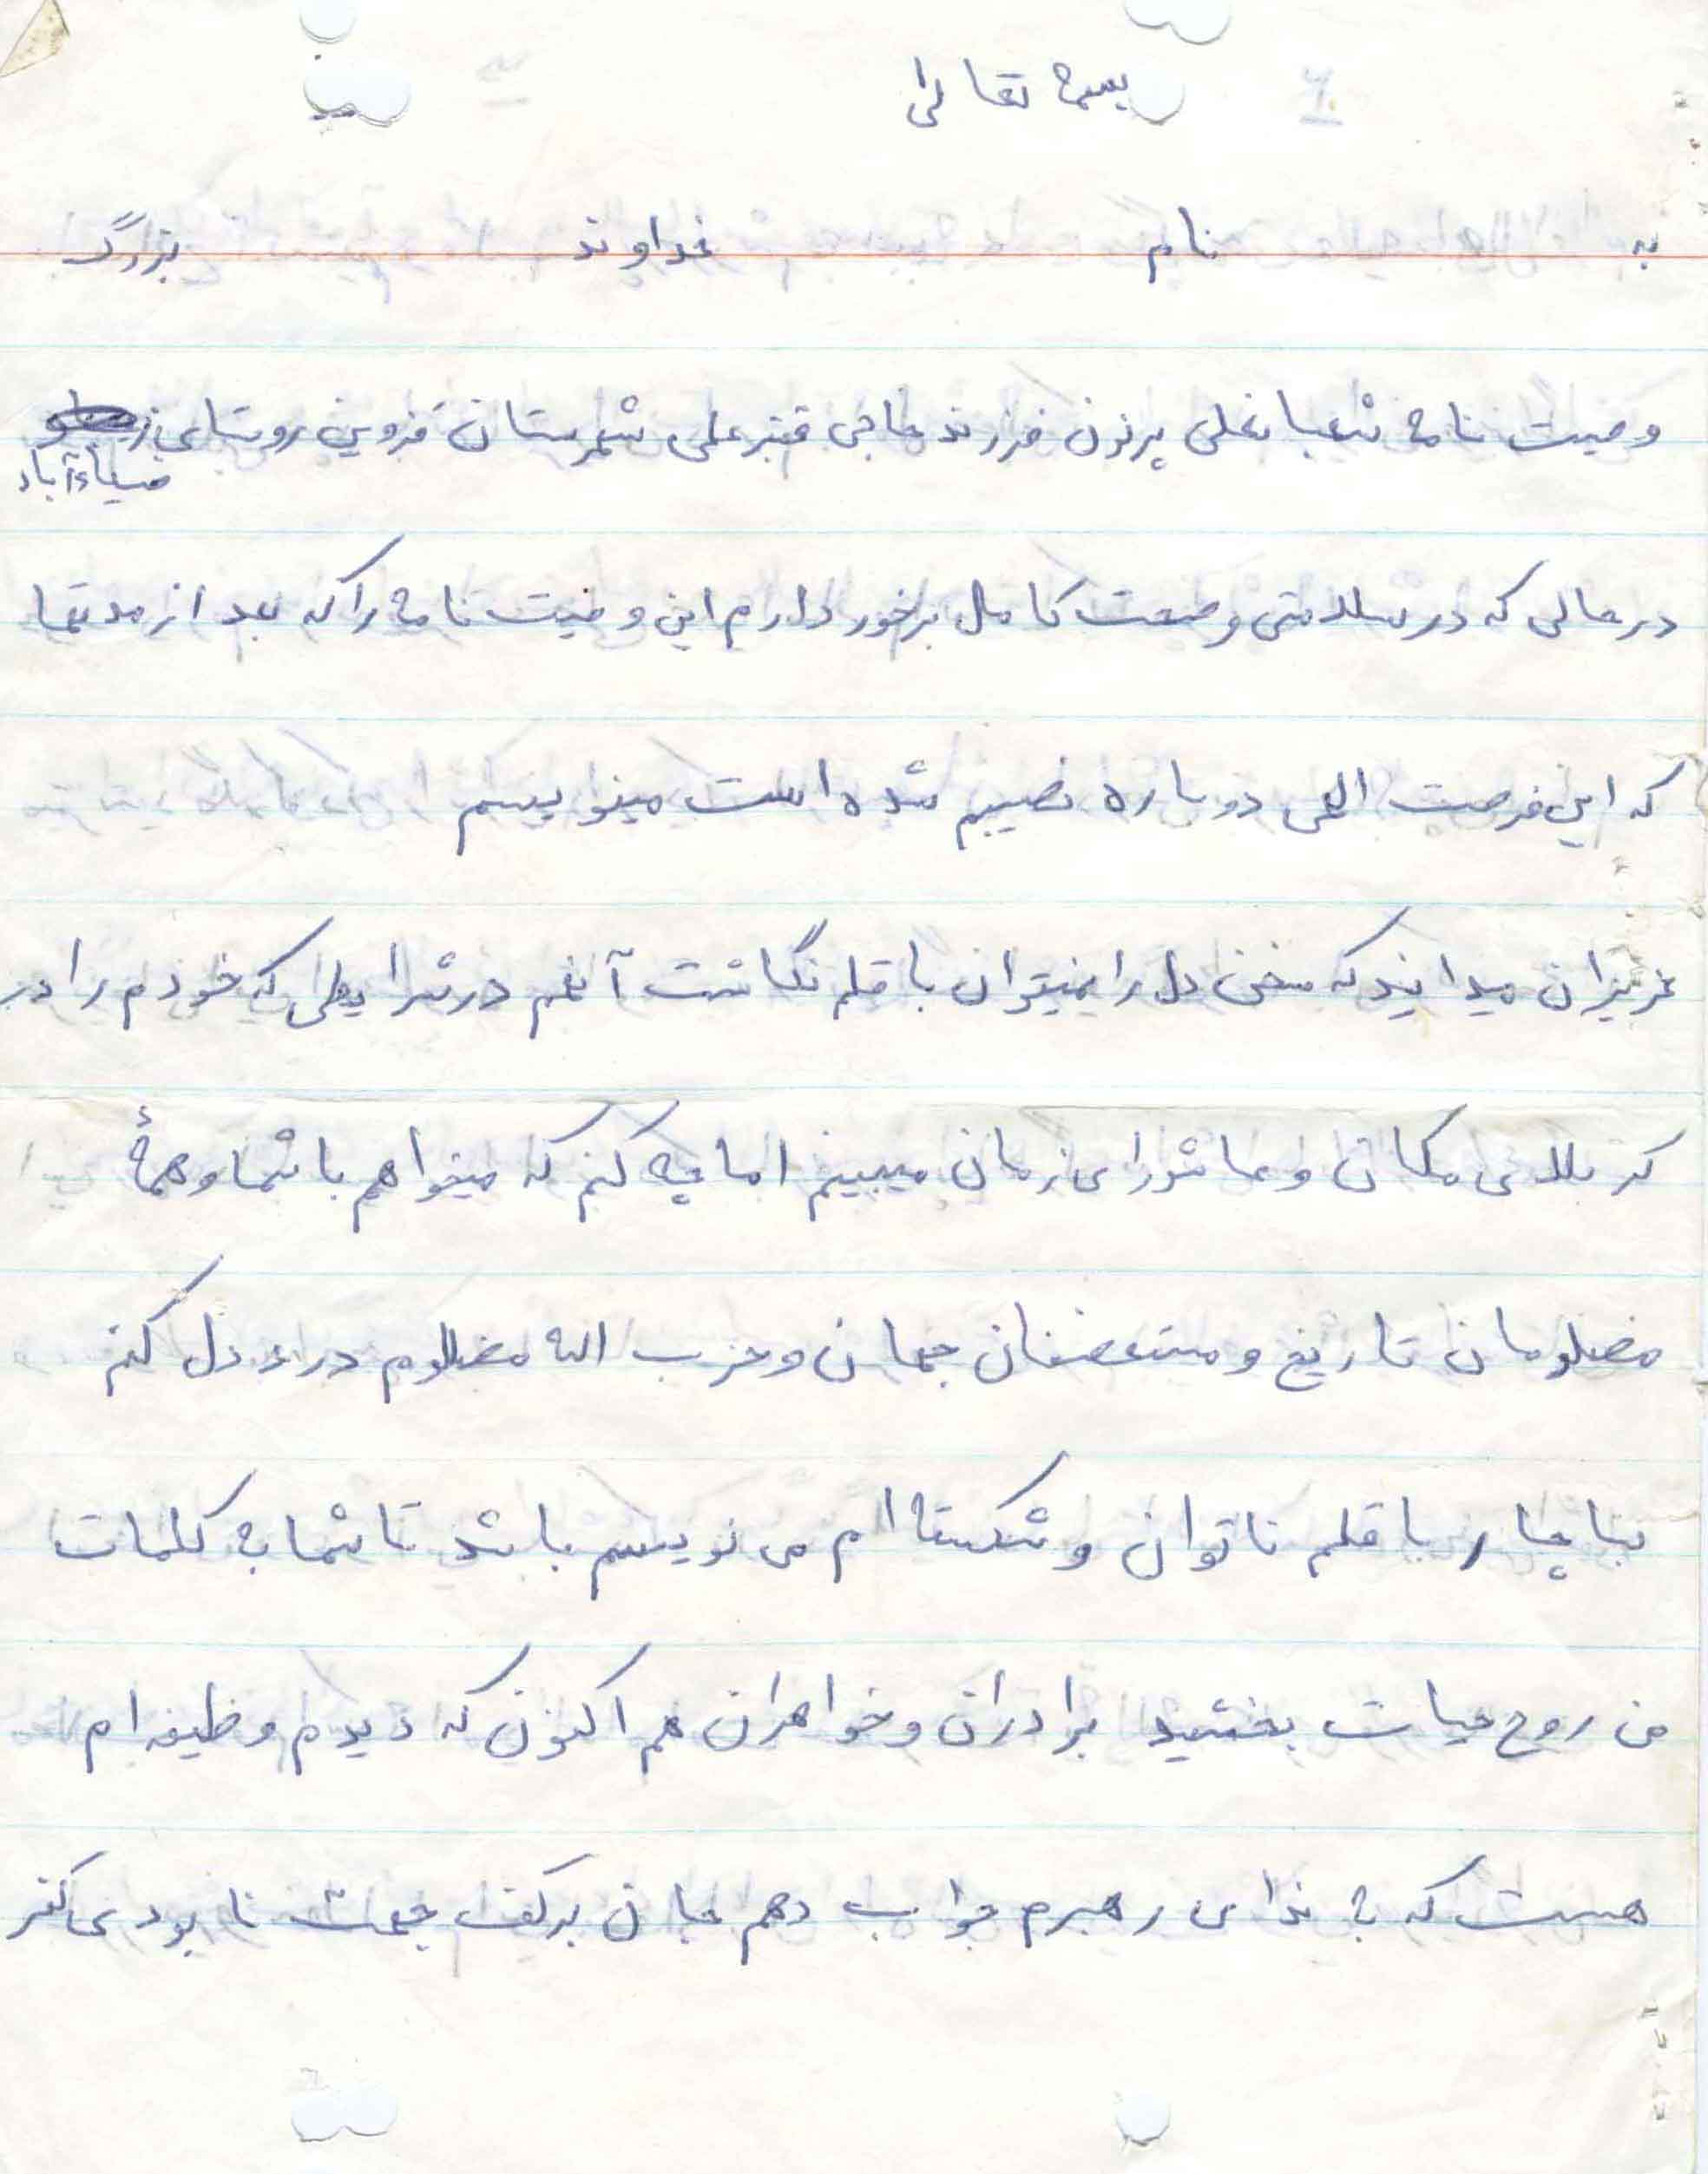 بسمه تعالی
به نام خداوند بزرگ
وصیت نامه شعبانعلی پرزن فرزند حاجی قنبرعلی شهرستان قزوین روستای
ضیاءآباد
در حالی که در سلامتی و صحت کامل برخور دارم این وصیت نامه را که بعد از مدتها
که این فرصت الهی دوباره نصیبم شده است مینویسم
عزیزان میدانید که سخن دل را نمیتوان با قلم نگاشت آنهم در شرایطی که خودم را در
کربلای مکان و عاشورای زمان میبینم اما چه کنم که میخواهم با شما و همهٔ
مضلومان تاریخ و مستعضفان جهان و حزب الله مضلوم درد دل کنم
بناچار با قلم ناتوان و شکسته ام می نویسم باشد تا شما به کلمات
من روح حیات بخشید برادران و خواهران هم اکنون که دیدم وظیفه ام
هست که به ندای رهبرم جواب دهم جان بر کف جهت نابودی کفر